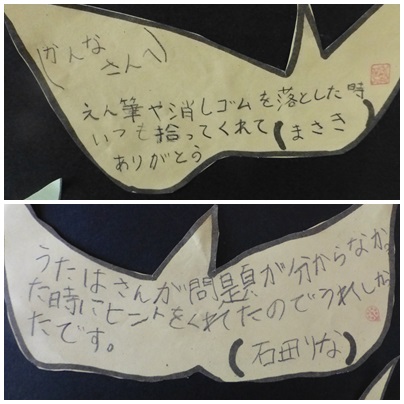 (かんな
さんへ)
えん筆や消しゴムを落とした時
いつも拾ってくれて(まさき)
ありがとう
うたはさんが問題が分からなかっ
た時にヒントをくれてたのでうれしかっ
たです。
(石田りな)